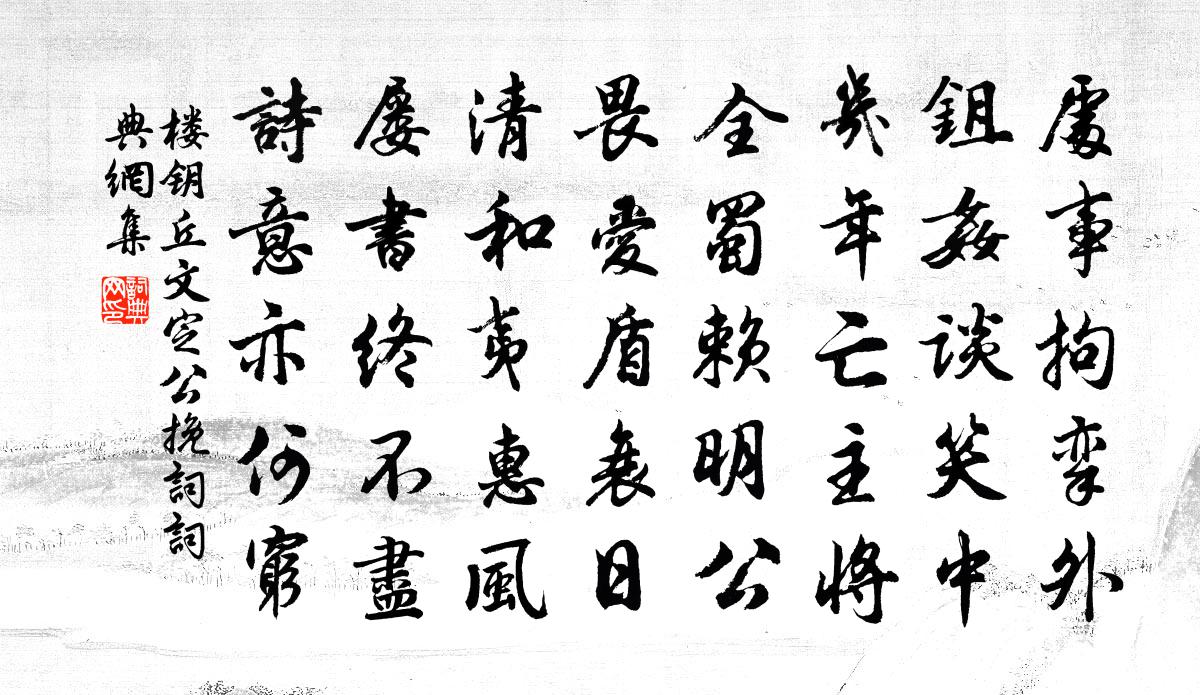 處事拘挛外
鉏姦谈笑中
幾年亡主將
全蜀賴明公
畏愛盾衰日
清和夷惠風
屡書终不盡
詩意亦何窮
楼钥丘文定公挽詞詞
典網集
詞典網印